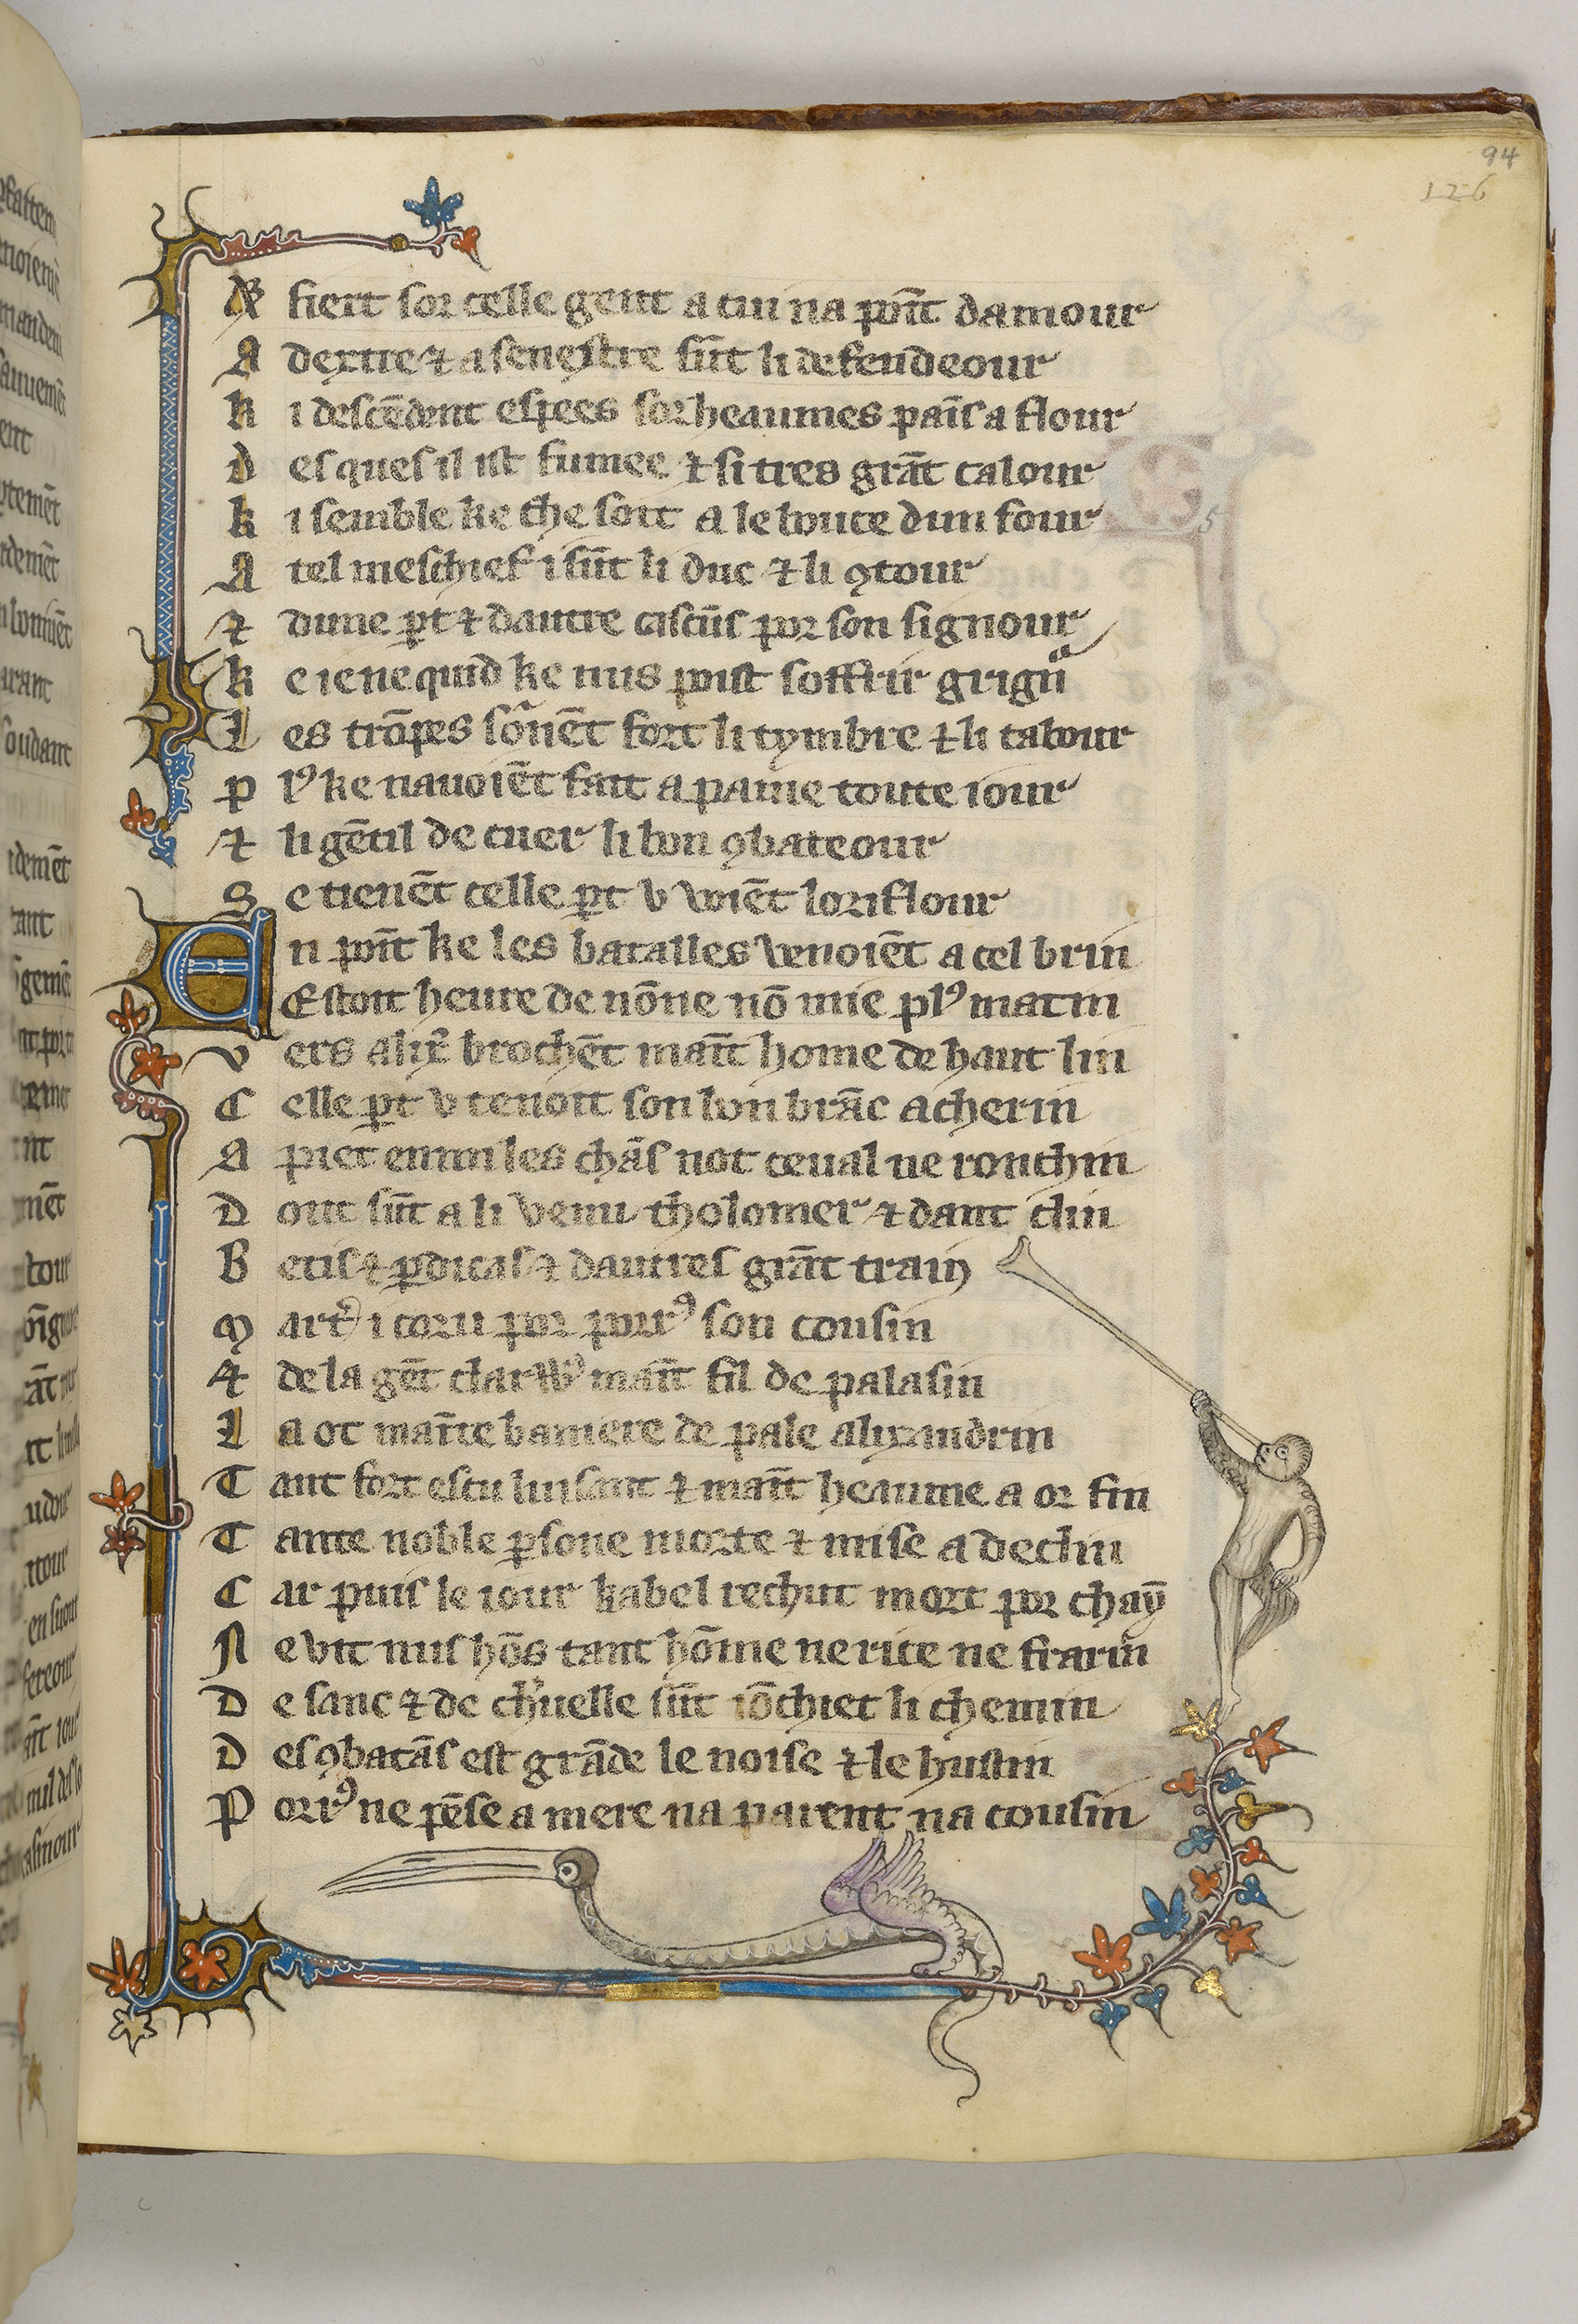 94
126
R fiert sor celle gent a cui na poīt damour
A dextre ⁊ a senestre sūt li defendeour
K i descēdent espees sor heaumes paīs a flour
D es ques il ist fumee ⁊ si tres grāt calour
K i semble ke che soit a le bouce dun four
A tel meschief i sūt li duc ⁊ li ꝯtour
⁊ dune ꝑt ⁊ dautre cascūs por son signour
K e ie ne quid ke nus puist soffrir grignᵃ
L es trōpes sōnēt fort li tymbre ⁊ li tabour
P lꝰ ke nauoiēt fait a paine toute iour
⁊ li gētil de cuer li bon ꝯbateour
S e tienēt celle ꝑt v voiēt loriflour
E n poīt ke les batalles venoiēt a cel brin
Estoit heure de nōne nō mie plꝰ matin
V ers alix̄ brochēt maīt home de haut lin
C elle ꝑt v tenoit son bon brāc acherin
A piet enmi les chās not ceual ne ronchin
D ont sūt a li venu tholomer ⁊ dant clin
B etis ⁊ ꝑdicas ⁊ dautres grāt train
M art̄ i coru por porrꝰ son cousin
⁊ de la gēt clarꝰ maīt fil de palasin
L a ot maīte baniere de pale alixandrin
T ant fort escu luisant ⁊ maīt heaume a or fin
T ante noble ꝑsone morte ⁊ mise a declin
C ar puis le iour kabel rechut mort por chaȳ
N e vit nus hōs tant hōme ne rice ne frarin
D e sanc ⁊ de ch'uelle sūt iōchiet li chemin
D es ꝯbatās est grāde le noise ⁊ le hustin
P orrꝰ ne pēse a mere na parent na cousin